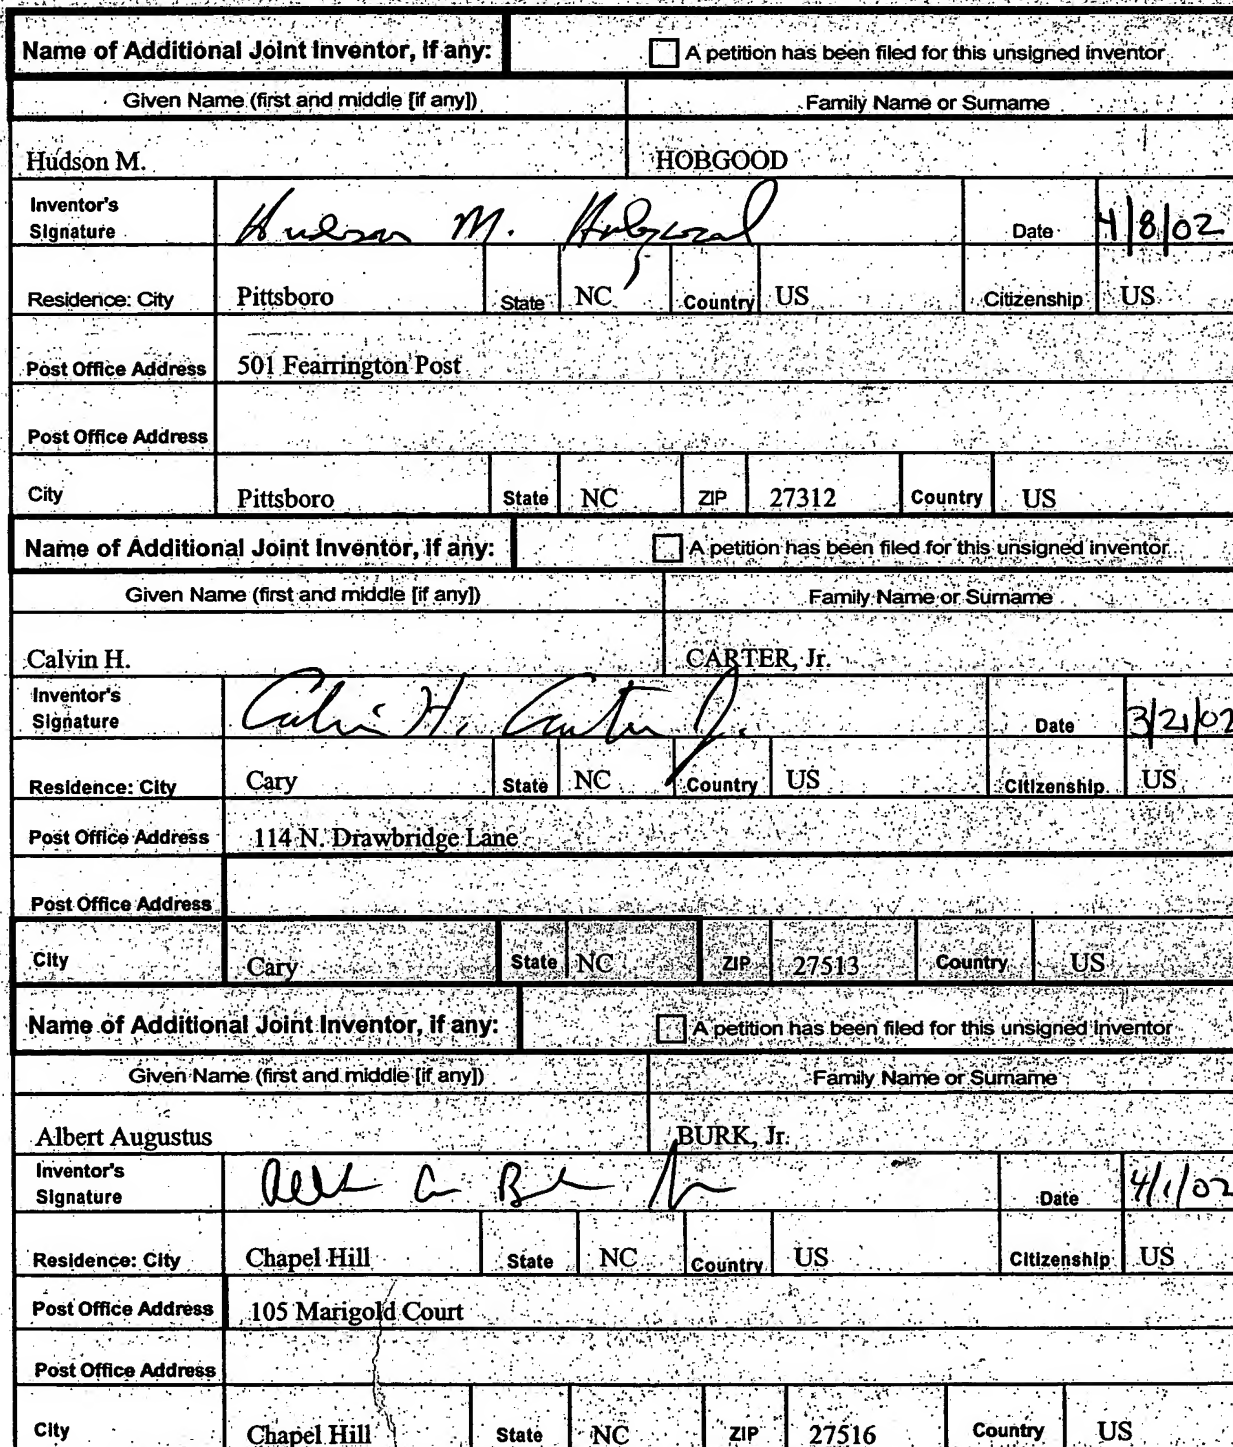 Name of Additional Joint Inventor, if any: A petition has been filed for this unsigned inventor
Given Name (first and middle [if any]) Family Name or Surname
Hudson M. HOBGOOD
Inventor's Signature Hudson M. Hobgood Date 4/8/02
Residence: City Pittsboro State NC Country US Citizenship US
Post Office Address 501 Fearrington Post
Post Office Address
City Pittsboro State NC ZIP 27312 Country US
Name of Additional Joint Inventor, if any: A petition has been filed for this unsigned inventor
Given Name (first and middle [if any]) Family Name or Surname
Calvin H. CARTER, Jr.
Inventor's Signature Calvin H. Carter Jr. Date 3/21/02
Residence: City Cary State NC Country US Citizenship US
Post Office Address 114 N. Drawbridge Lane
Post Office Address
City Cary State NC ZIP 27513 Country US
Name of Additional Joint Inventor, if any: A petition has been filed for this unsigned inventor
Given Name (first and middle [if any]) Family Name or Surname
Albert Augustus BURK, Jr.
Inventor's Signature Albert A Burk Jr Date 4/1/02
Residence: City Chapel Hill State NC Country US Citizenship US
Post Office Address 105 Marigold Court
Post Office Address
City Chapel Hill State NC ZIP 27516 Country US